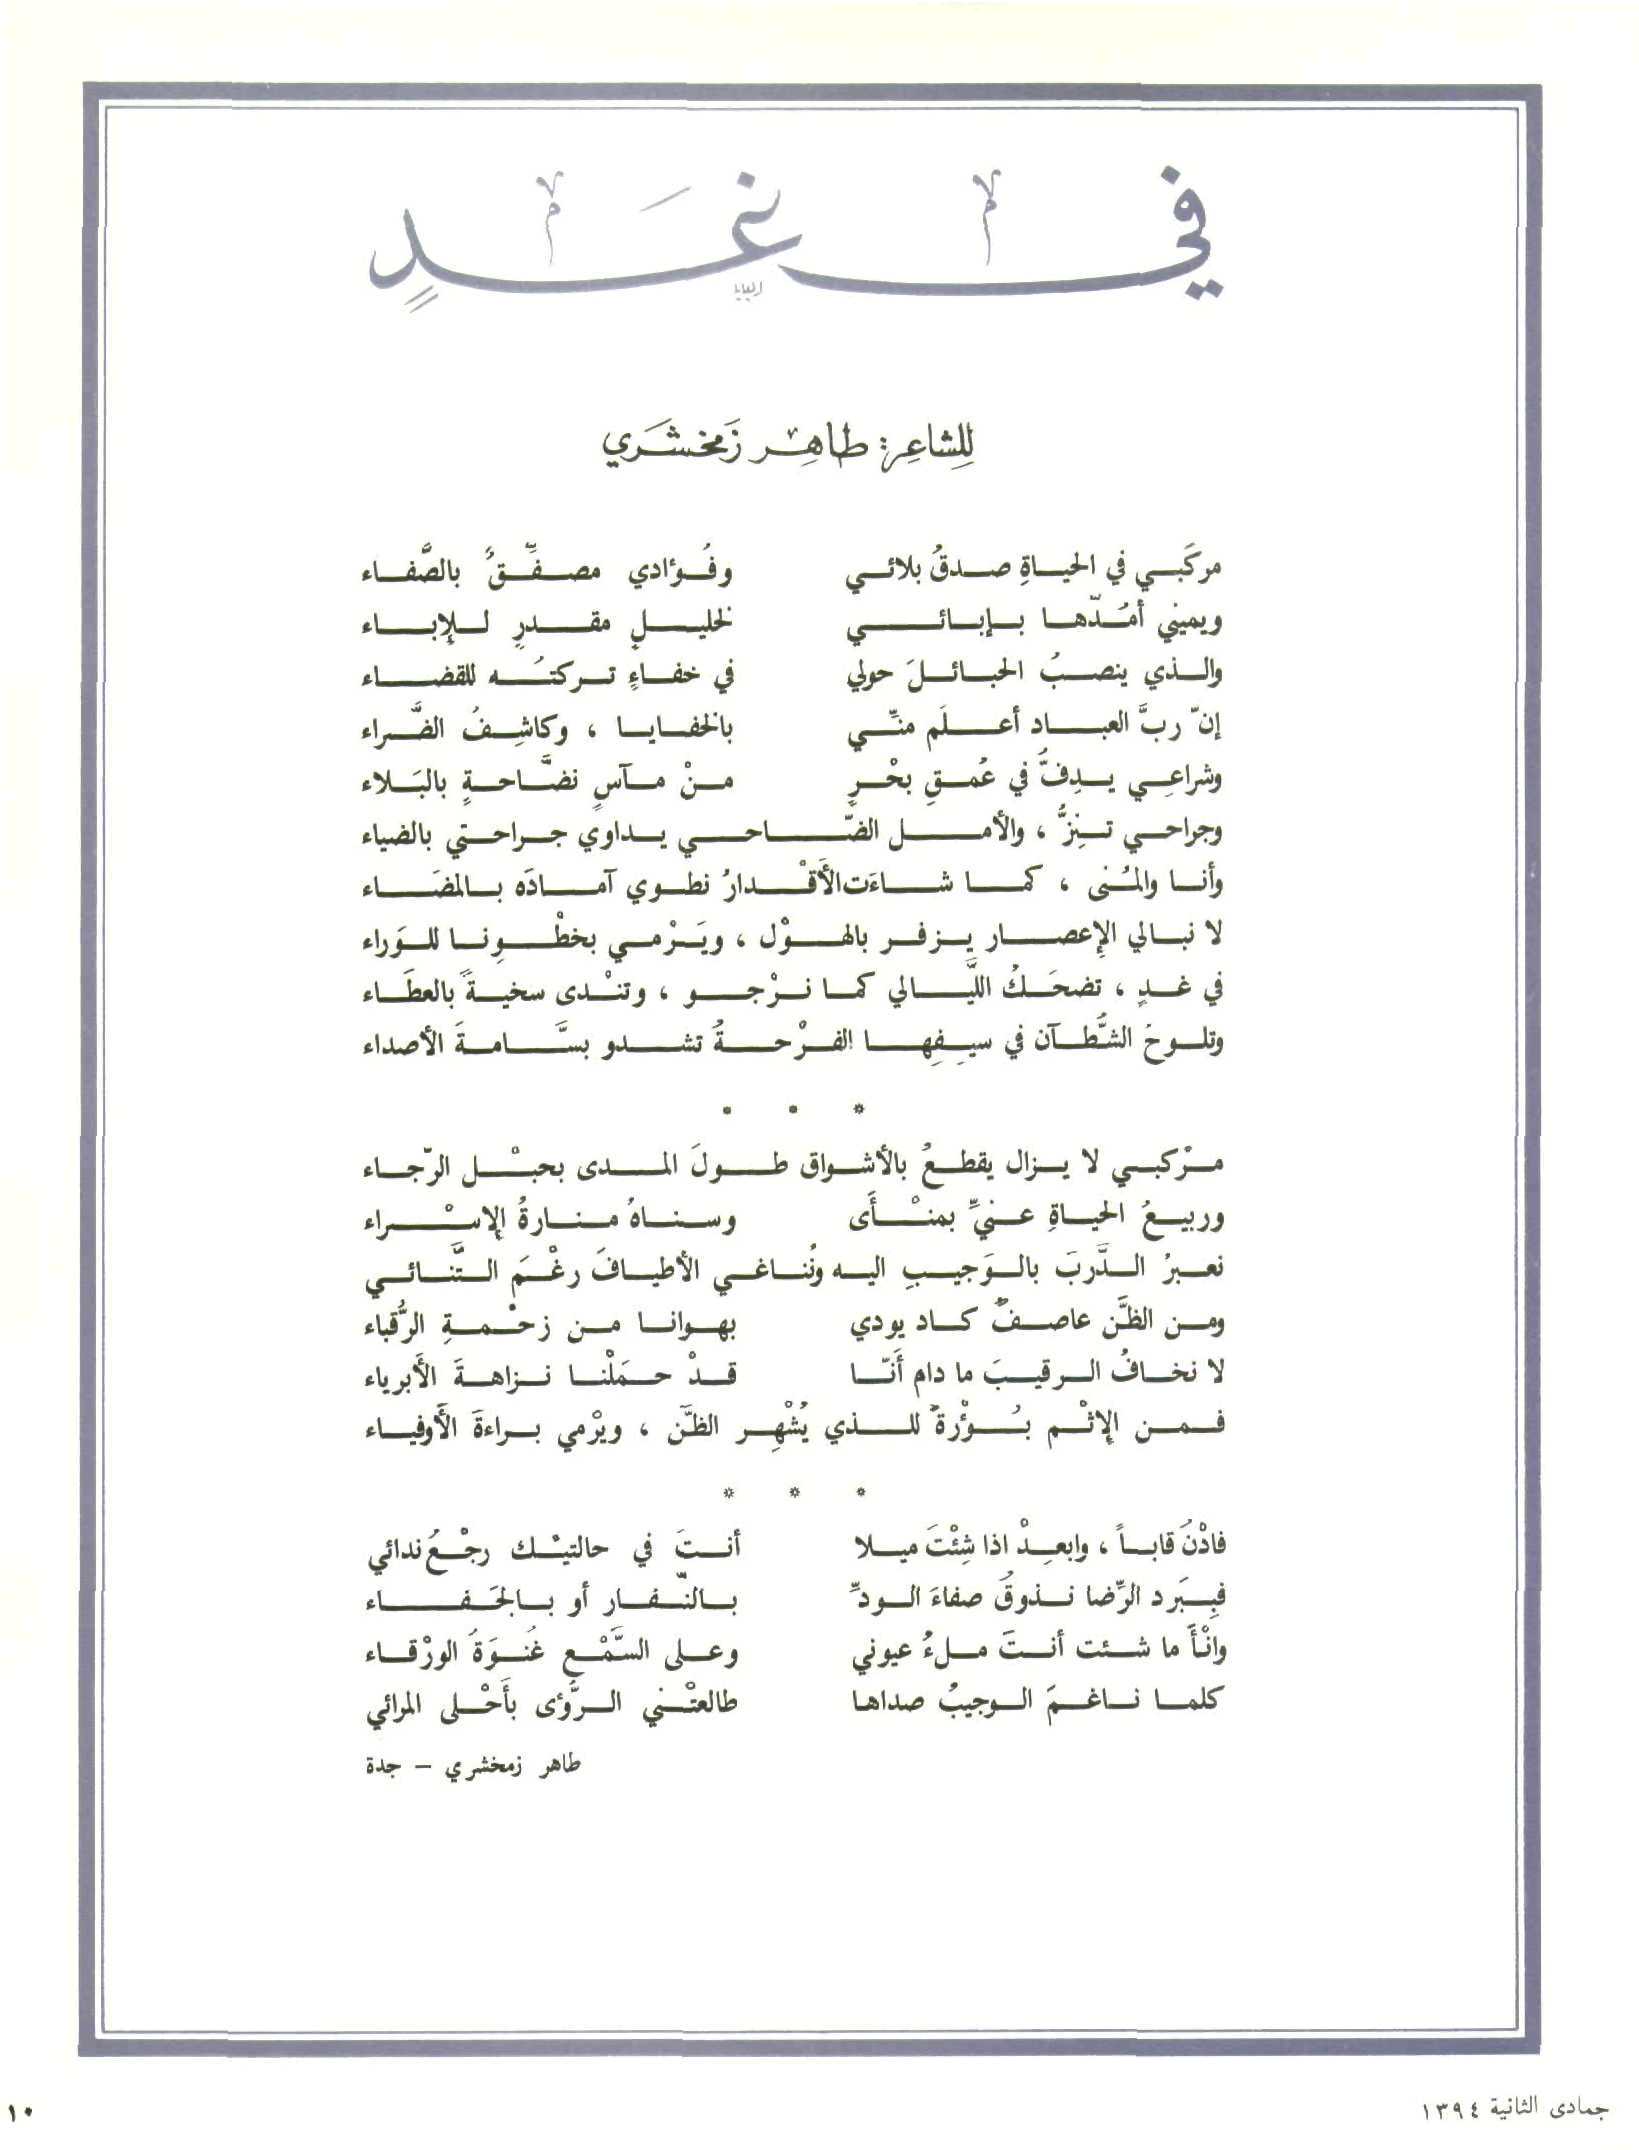 في غَدٍ
لِلشاعِر: طاهِر زَمخشَري
مركَبي في الحياةِ صدقُ بلائي وفُؤادي مصفِّقٌ بالصَّفاء
ويميني أمُدّها بإبائي لخليلٍ مقدرٍ للإباء
والذي ينصبُ الحبائلَ حولي في خفاءٍ تركتُه للقضاء
إنّ ربَّ العباد أعلَم منّي بالخفايا ، وكاشِفُ الضَّراء
وشراعِي يدِفُّ في عُمقِ بحْرٍ منْ مآسٍ نضَّاحةٍ بالبَلاء
وجراحي تنِزُّ ، والأمل الضَّاحي يداوي جراحتي بالضياء
وأنا والمُنى ، كما شاءَت الأَقْدارُ نطوي آمادَه بالمضَاء
لا نبالي الإعصار يزفر بالهوْل ، ويَرْمي بخطْونا للوَراء
في غدٍ ، تضحَكُ اللَّيالي كما نرْجو ، وتنْدى سخيةً بالعطَاء
وتلوحُ الشُّطآن في سيفِها الفرْحةُ تشدو بسَّامةَ الأصداء
* * *
مرْكبي لا يزال يقطعُ بالأشواق طولَ المدى بحبْل الرّجاء
وربيعُ الحياةِ عنيِّ بمنْأَى وسناهُ منارةُ الإسْراء
نعبرُ الدَّربَ بالوَجيبِ اليه ونُناغي الأطيافَ رغْمَ التَّنائي
ومن الظَّن عاصفٌ كاد يودي بهوانا من زحْمةِ الرُّقباء
لا نخافُ الرقيبَ ما دام أَنّا قدْ حمَلْنا نزاهةَ الأَبرياء
فمن الإثْم بُؤْرةٌ للذي يُشْهِر الظَّن ، ويرْمي براءةَ الأَوفياء
* * *
فادْنُ قاباً ، وابعدْ اذا شِئْتَ ميلا أنتَ في حالتيْك رجْعُ ندائي
فبِبَرد الرِّضا نذوقُ صفاءَ الودِّ بالنّفار أو بالجَفاء
وانْأَ ما شئت أنتَ ملءُ عيوني وعلى السَّمْع غُنوَةُ الورْقاء
كلما ناغمَ الوجيبُ صداها طالعتْني الرُّؤى بأَحْلى المرائي
طاهر زمخشري – جدة
جمادى الثانية ١٣٩٤
١٠